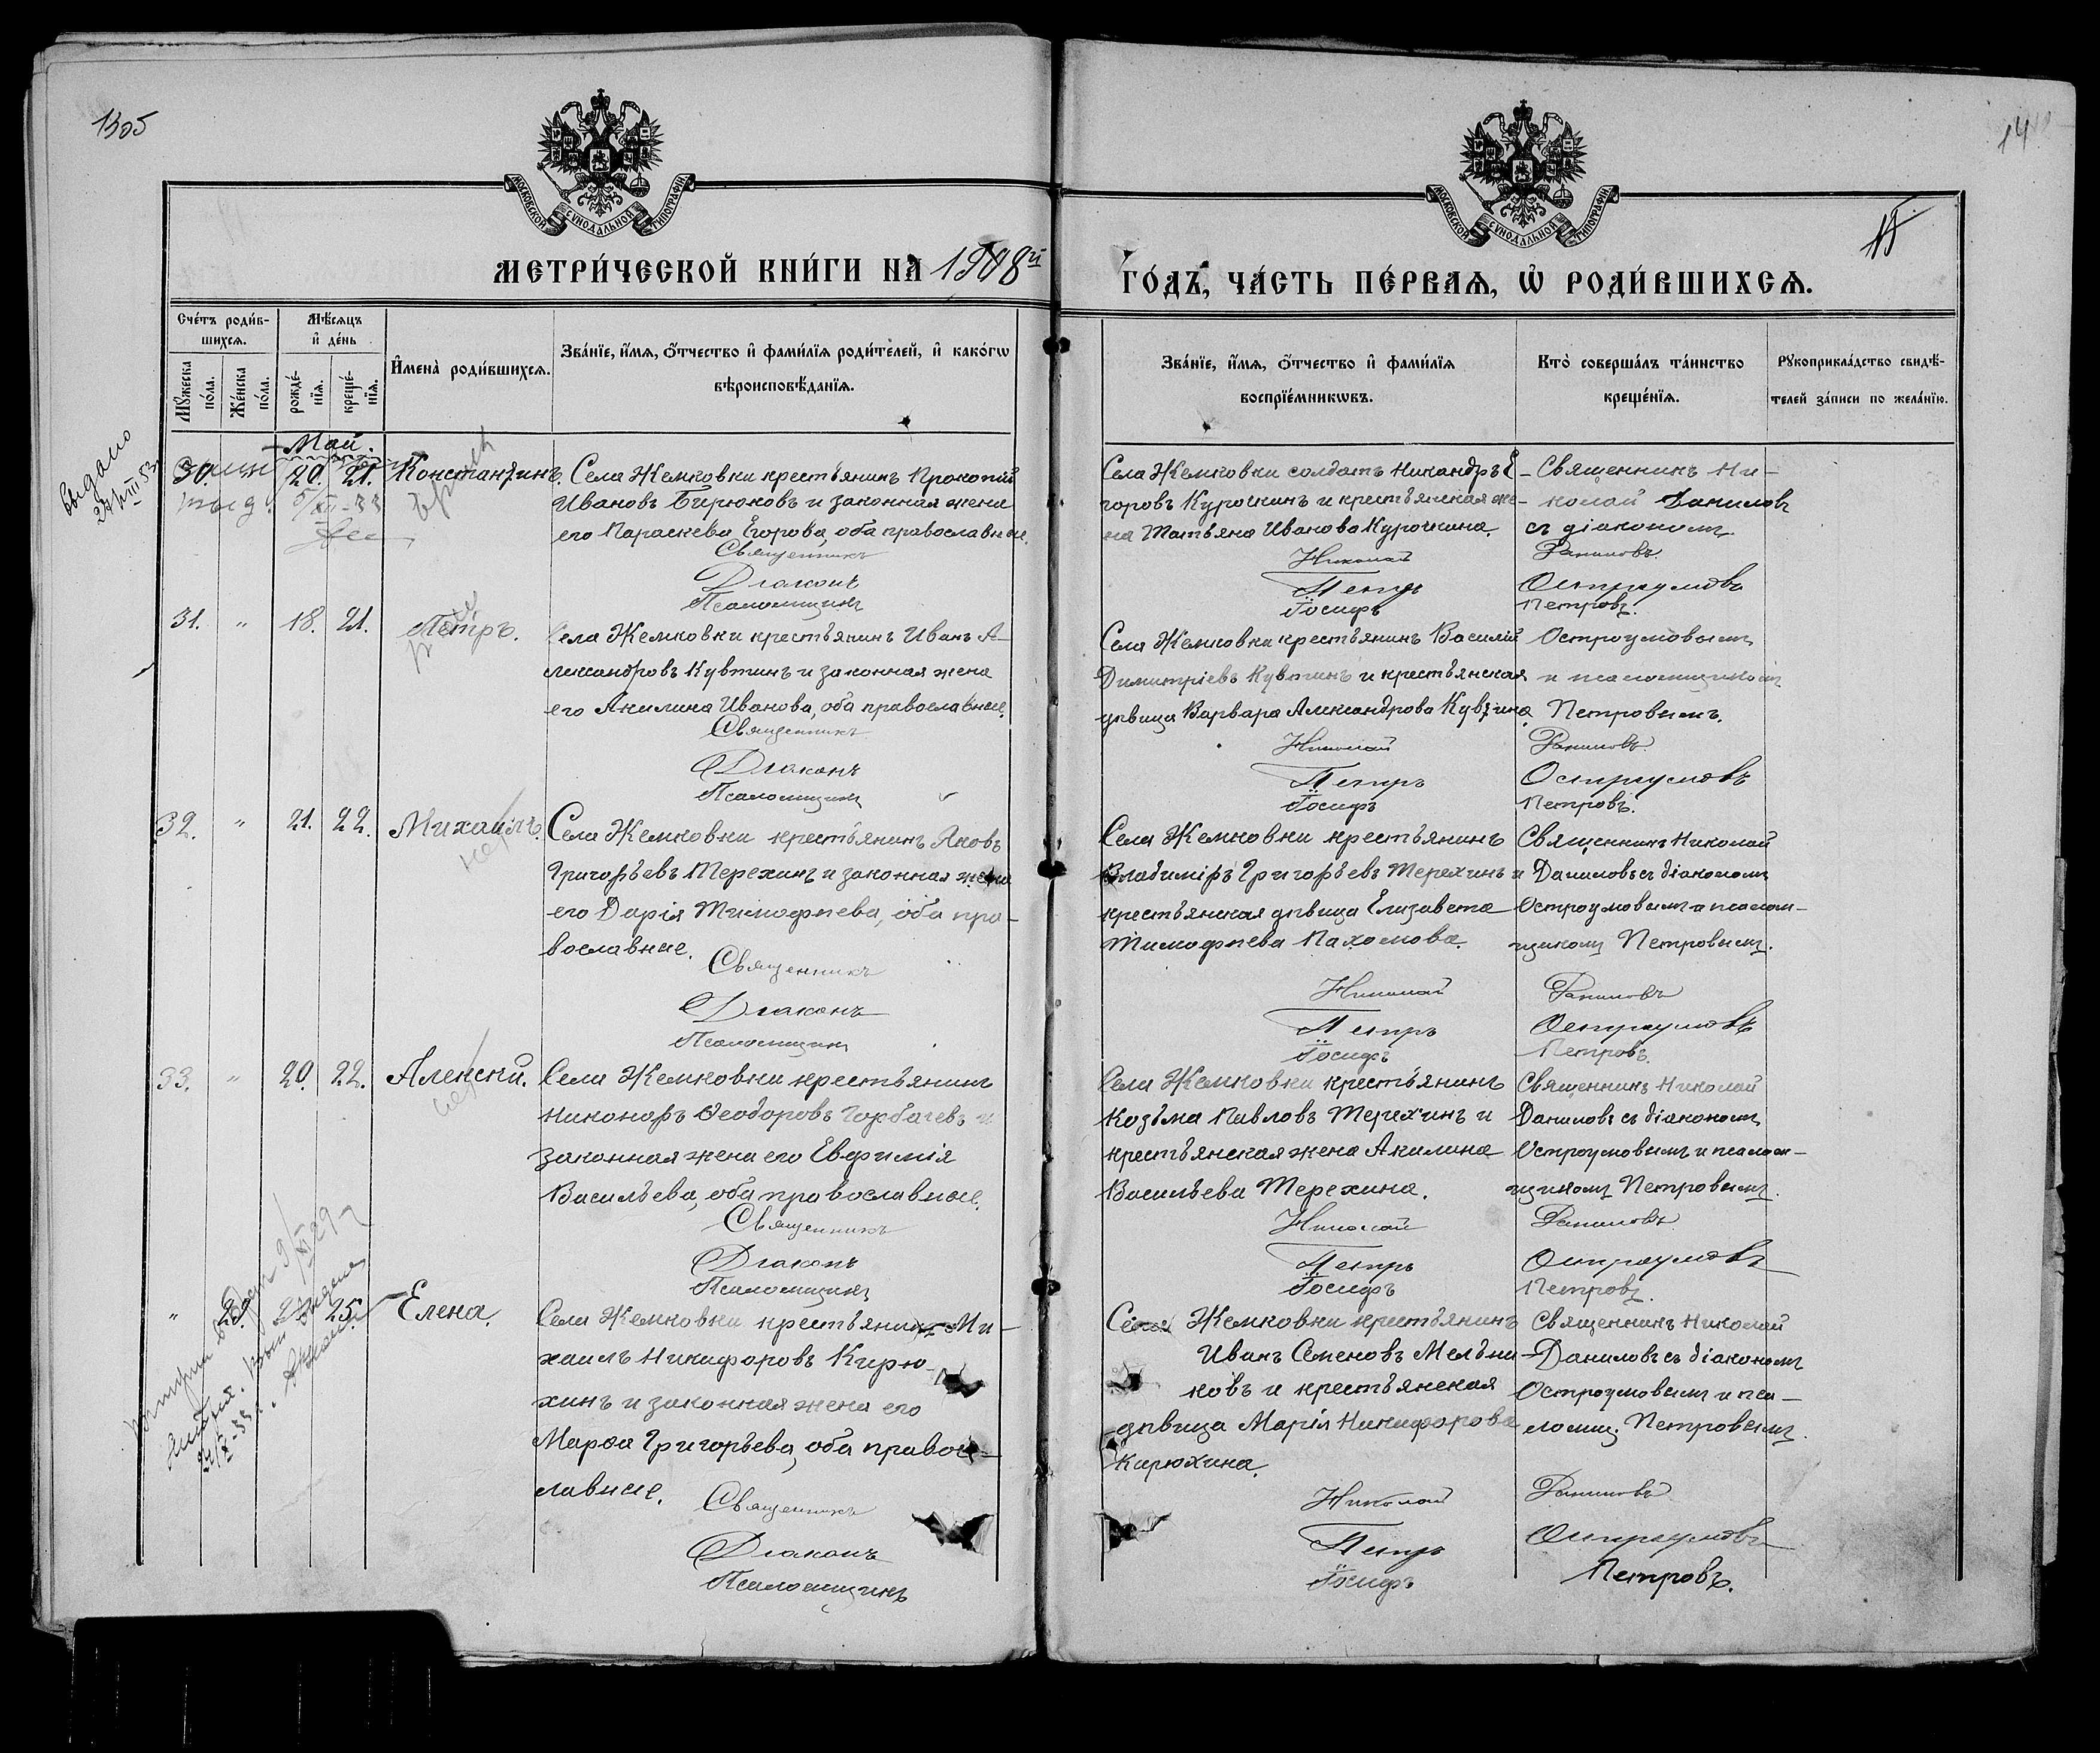 1305
14
15
МОСКОВСКОЙ СУНОДАЛЬНОЙ ТИПОГРАФІИ
МОСКОВСКОЙ СУНОДАЛЬНОЙ ТИПОГРАФІИ
МЕТРИ́ЧЕСКОЙ КНИ́ГИ НА 1908й
ГО́ДЪ, ЧА́СТЬ ПЕ́РВАѦ, Ѡ҆ РОДИ́ВШИХСѦ.
Сче́тъ роди́в-
шихсѧ.
Мꙋ́жеска
по́ла.
Же́нска
по́ла.
Мѣ́сѧцъ
и҆ де́нь
рожде́-
нїѧ.
креще́-
нїѧ.
И҆мена̀ роди́вшихсѧ.
Зва́нїе, и҆́мѧ, ѻ҆́тчество и҆ фами́лїѧ роди́телей, и҆ како́гѡ
вѣроисповѣ́данїѧ.
Зва́нїе, и҆́мѧ, ѻ҆́тчество и҆ фами́лїѧ
воспрїе́мникѡвъ.
Кто̀ соверша́лъ та́инство
креще́нїѧ.
Рꙋкоприкла́дство свидѣ́-
телей за́писи по жела́нїю.
Май.
выдано
30. " 20. 21. Константинъ.
5/XII-33
Села Жемковки крестьянинъ Прокопій
Ивановъ Бирюковъ и законная жена
его Параскева Егорова, оба православные.
Священникъ
Діаконъ
Псаломщикъ
Села Жемковки солдатъ Никандръ Е-
горовъ Курочкинъ и крестьянская же-
на Татьяна Иванова Курочкина.
Николай
Петръ
Іосифъ
Священникъ Ни-
колай Данилов
съ діакономъ
Даниловъ.
Остроумовъ
Петровъ.
31. " 18. 21. Петръ.
Села Жемковки крестьянинъ Иванъ А-
лександровъ Кувтинъ и законная жена
его Акилина Иванова, оба православные.
Священникъ
Діаконъ
Псаломщикъ
Села Жемковки крестьянинъ Василій
Димитріевъ Кувтинъ и крестьянская
дѣвица Варвара Александрова Кувтина.
Николай
Петръ
Іосифъ
Остроумовымъ
и псаломщикомъ
Петровымъ.
Даниловъ.
Остроумовъ
Петровъ.
32. " 21. 22. Михаилъ.
Села Жемковки крестьянинъ Яковъ
Григорьевъ Терехинъ и законная жена
его Дарія Тимофѣева, оба пра-
вославные.
Священникъ
Діаконъ
Псаломщикъ
Села Жемковки крестьянинъ
Владиміръ Григорьевъ Терехинъ и
крестьянская дѣвица Елизавета
Тимофѣева Пахомова.
Николай
Петръ
Іосифъ
Священникъ Николай
Даниловъ съ діакономъ
Остроумовымъ и псалом-
щикомъ Петровымъ.
Даниловъ
Остроумовъ
Петровъ.
33. " 20. 22. Алексій.
Села Жемковки крестьянинъ
Никоноръ Ѳеодоровъ Горбачевъ и
законная жена его Евфимія
Васильева, оба православные.
Священникъ
Діаконъ
Псаломщикъ
Села Жемковки крестьянинъ
Козьма Павловъ Терехинъ и
крестьянская жена Акилина
Васильева Терехина.
Николай
Петръ
Іосифъ
Священникъ Николай
Даниловъ съ діакономъ
Остроумовымъ и псалом-
щикомъ Петровымъ.
Даниловъ.
Остроумовъ
Петровъ.
" 29. 25. Елена.
Села Жемковки крестьянинъ Ми-
хаилъ Никифоровъ Кирю-
хинъ и законная жена его
Марѳа Григорьева, оба правос-
лавные.
Священникъ
Діаконъ
Псаломщикъ
Села Жемковки крестьянинъ
Иванъ Семеновъ Мельни-
ковъ и крестьянская
дѣвица Марія Никифорова
Кирюхина.
Николай
Петръ
Іосифъ
Священникъ Николай
Даниловъ съ діакономъ
Остроумовымъ и пса-
ломщ. Петровымъ.
Даниловъ
Остроумовъ
Петровъ.